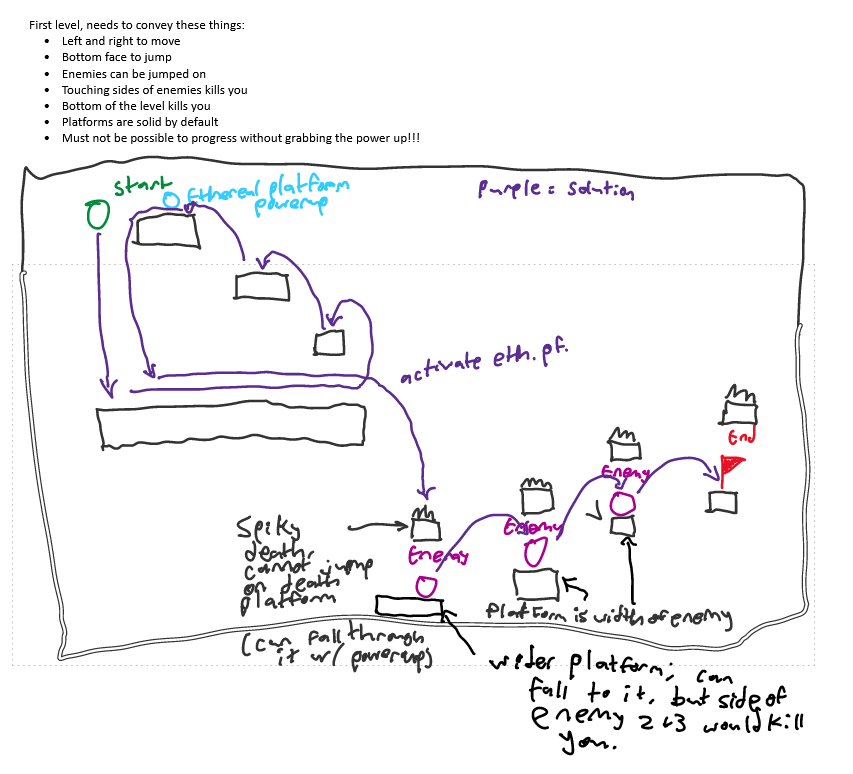 First level, needs to convey these things:
• Left and right to move
• Bottom face to jump
• Enemies can be jumped on
• Touching sides of enemies kills you
• Bottom of the level kills you
• Platforms are solid by default
• Must not be possible to progress without grabbing the power up!!!
start
Ethereal platform
powerup
Purple = Solution
activate eth. pf.
End
Enemy
Enemy
Enemy
Spiky
death,
cannot jump
on death
platform
(can fall through
it w/ powerup)
Platform is width of enemy
wider platform; can
fall to it, but side of
enemy 2+3 would kill
you.